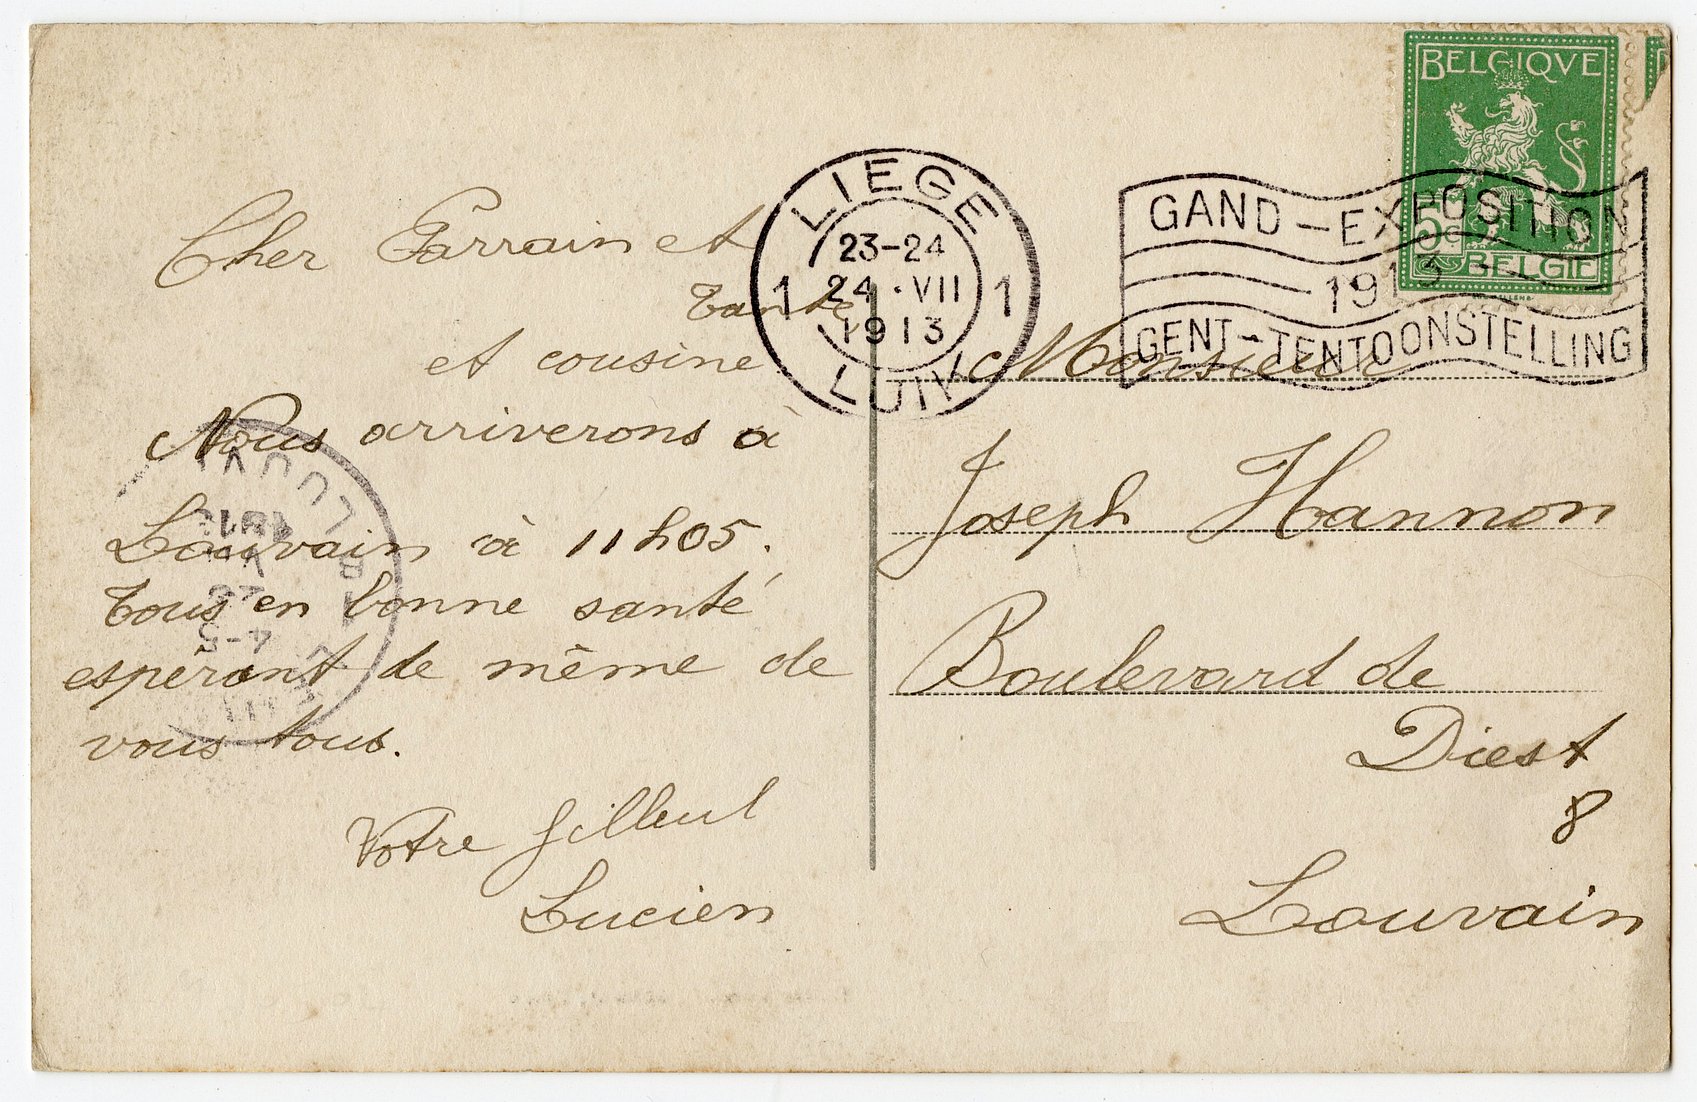 Cher Parrain et
Tante,
et cousine.
Nous arriverons à
Louvain à 11h05.
Tous en bonne santé
espérant de même de
vous tous.
Votre filleul
Lucien
LIEGE
1 23-24 1
24 · VII
1913
LUIK
BELGIQVE
5c
BELGIË
GAND - EXPOSITION
1913
GENT - TENTOONSTELLING
Monsieur
Joseph Hannon
Boulevard de
Diest
8
Louvain
4-5